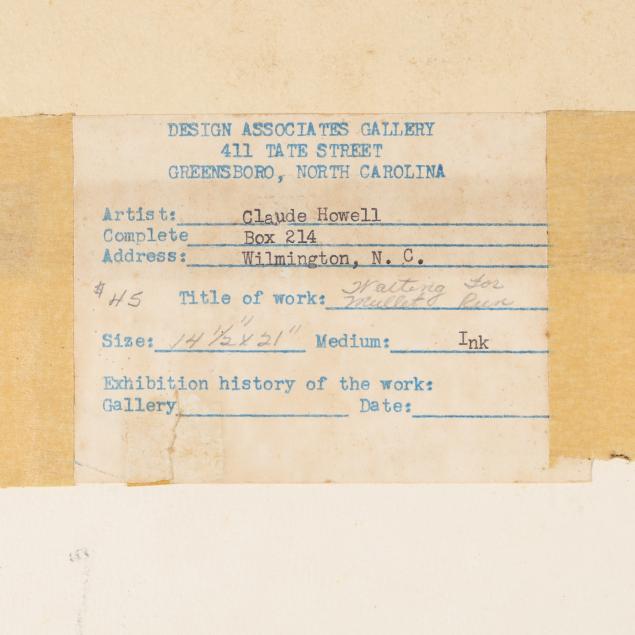 DESIGN ASSOCIATES GALLERY
411 TATE STREET
GREENSBORO, NORTH CAROLINA
Artist: Claude Howell
Complete Box 214
Address: Wilmington, N. C.
$45 Title of work: Waiting For
Mullet Run
Size: 14 1/2" x 21" Medium: Ink
Exhibition history of the work:
Gallery Date: